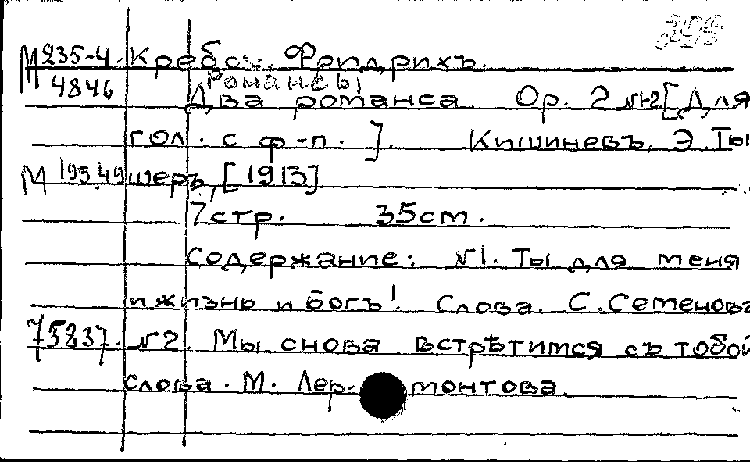 М 235-4 Кребс, Фридрихъ.
4846 Романсы
Два романса Op. 2 №1-2 [Для
гол. с ф-п.]. Кишиневъ, Э. Ты
М 19549 шеръ, [1913]
7 стр. 35 cm.
Содержание: №1. Ты для меня
и жизнь и богъ! Слова С. Семенова
75837. №2. Мы снова встрѣтимся съ тобой
слова. М. Лермонтова.